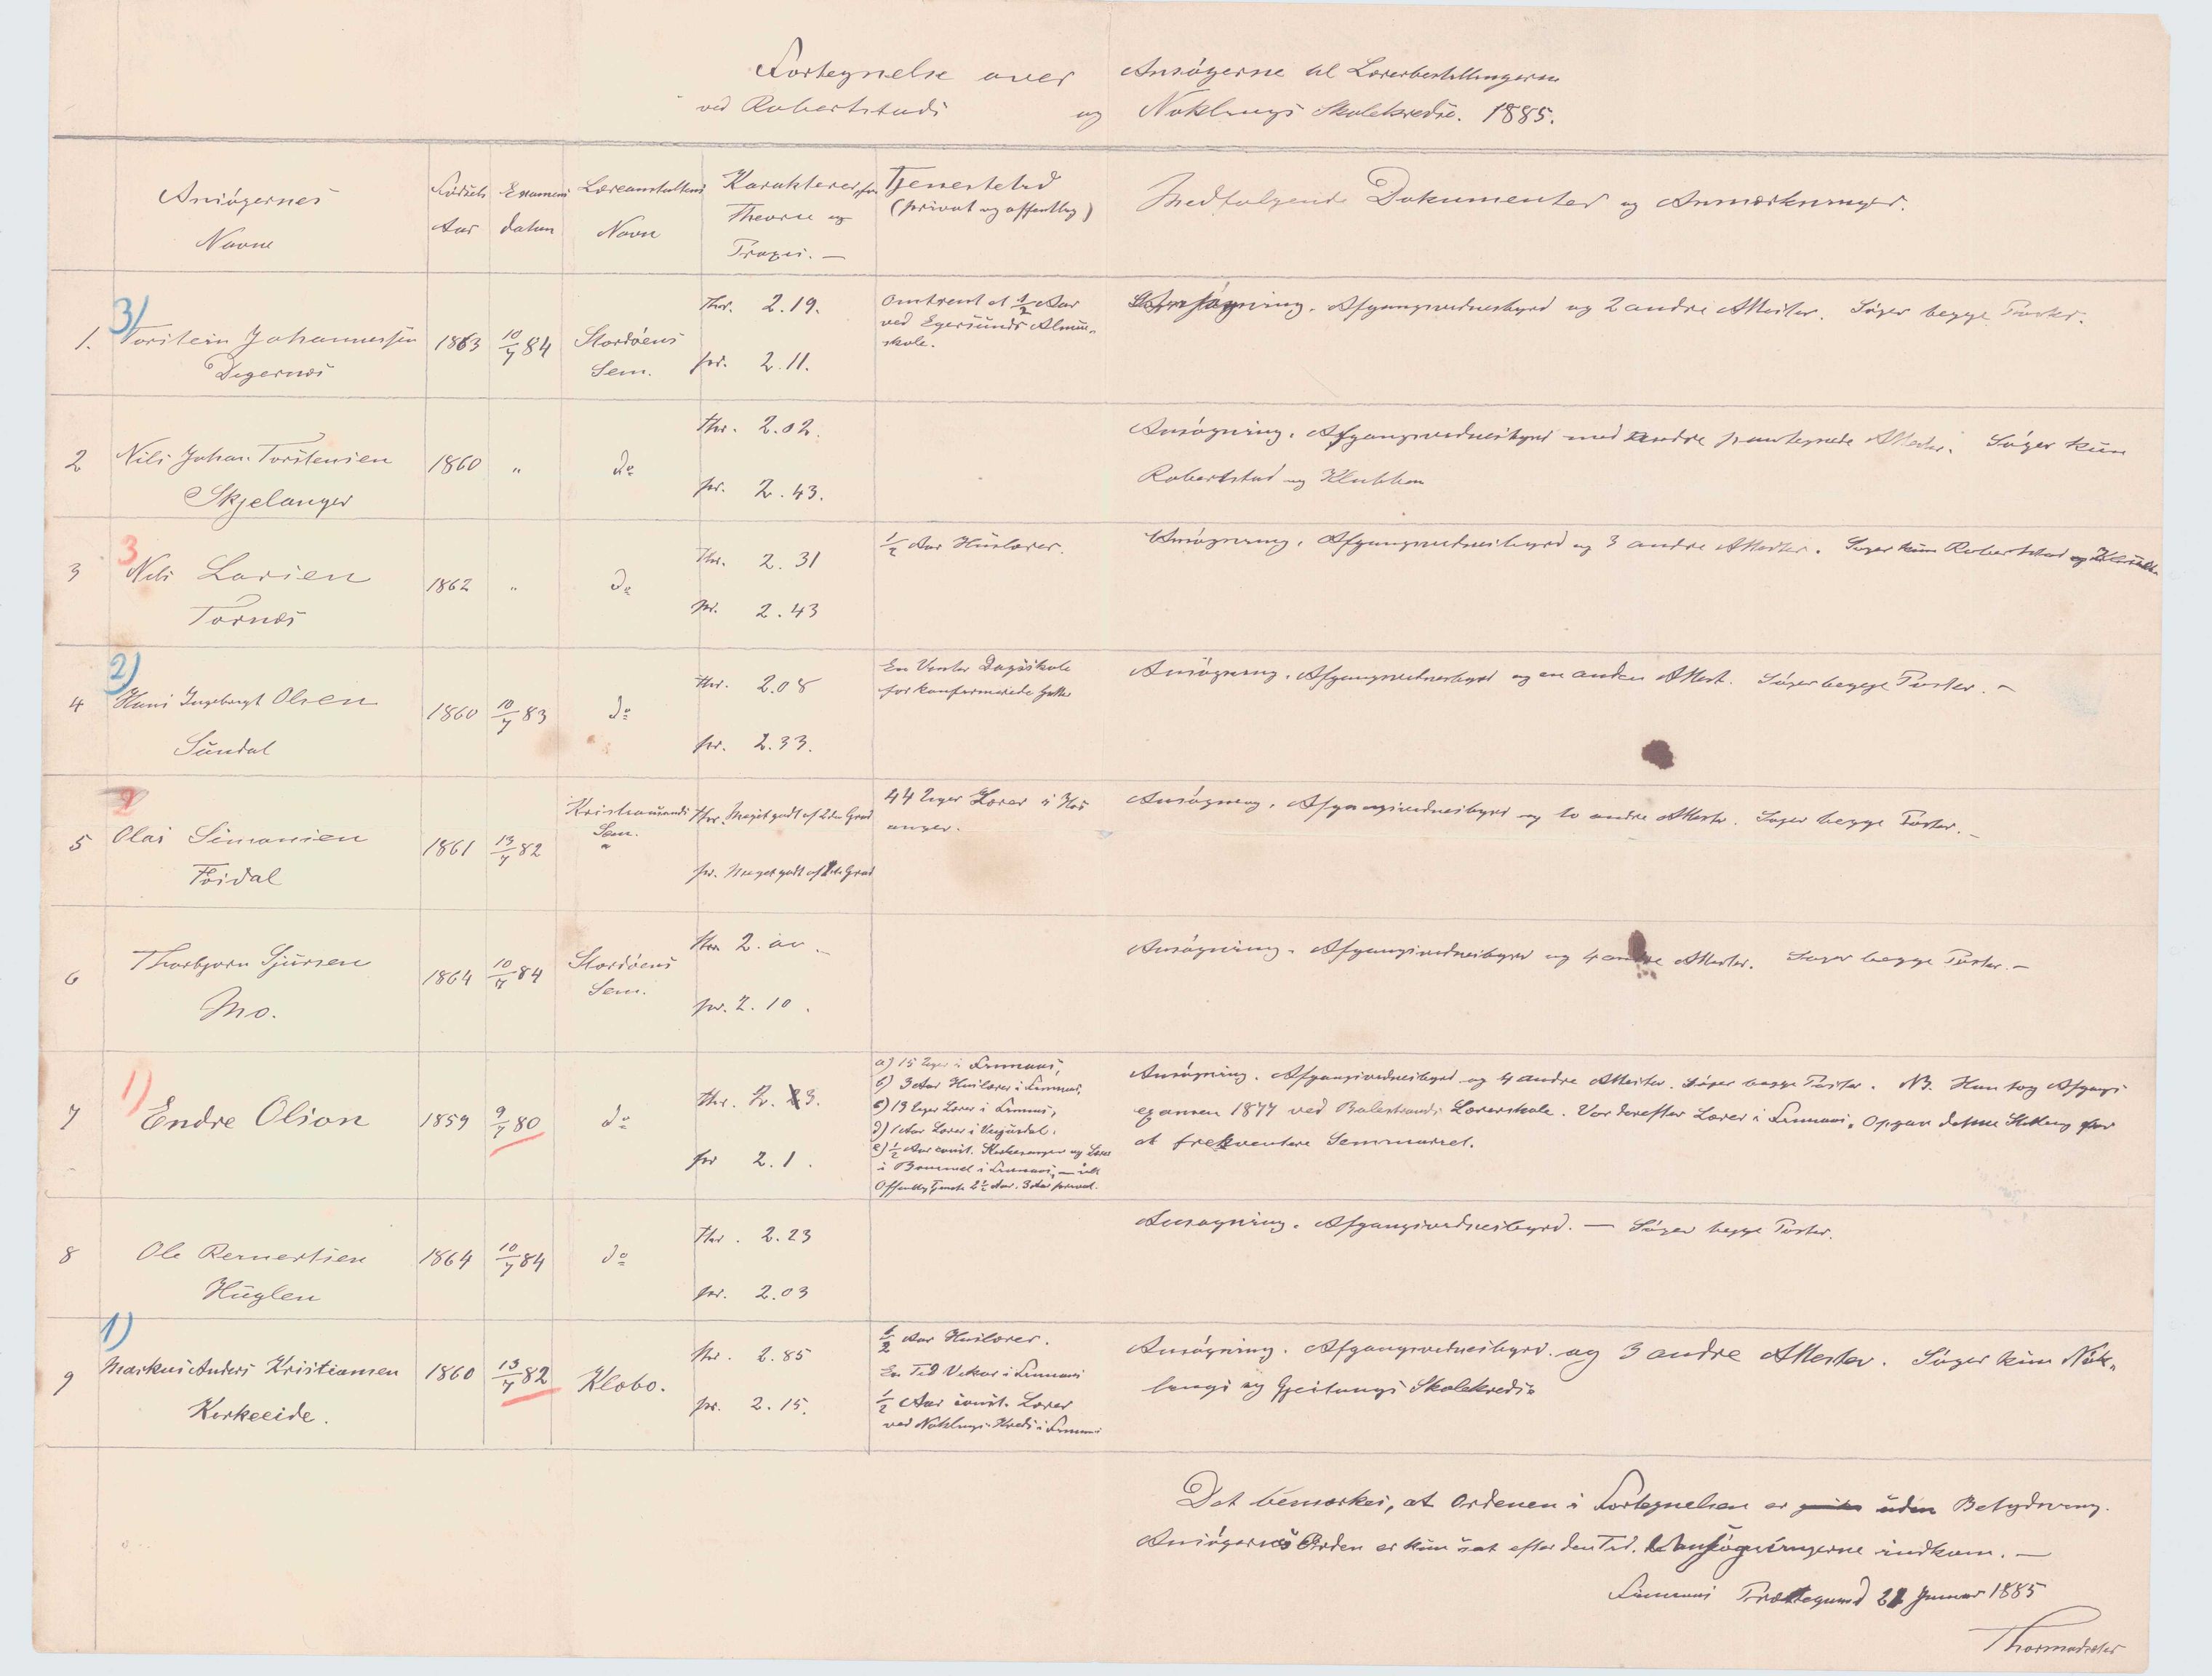 Fortegnelse over Ansøgerne til Lærerbestillingerne
ved Robertstads og Noklings Skolekredse. 1885.
Ansøgernes
Navne
Fødsels
Aar
Examens
datum
Læreanstaltens
Navn
Karakterer for
Theorie og
Praxis. —
Tjenestetid
(privat og offentlig)
Medfølgende Dokumenter og Anmærkninger.
3)
1. Torstein Johannessen
Degernæs
1863
10/7 84
Stordøens
Sem.
Thr. 2.19.
pr. 2.11.
Omtrent et 1/2 Aar
ved Egersunds Almue-
skole.
Ansøgning. Afgangsvidnesbyrd og 2 andre Attester. Søger begge Poster.
2 Nils Johan Torstensen
Skjelanger
1860
"
do
Thr. 2.02.
pr. 2.43.
Ansøgning. Afgangsvidnesbyrd med andre paategnede Attester. Søger kun
Robertstad og Klubben
3
3 Nils Larsen
Tornæs
1862
"
do
Thr. 2.31
pr. 2.43
1/2 Aar Huslærer.
Ansøgning. Afgangsvidnesbyrd og 3 andre Attester. Søger kun Robertstad og Klubben
2)
4 Hans Ingebrigt Olsen
Sundal
1860
10/7 83
do
Thr. 2.08
pr. 2.33.
En Vinter Dagskole
for konfirmerede Gutter
Ansøgning. Afgangsvidnesbyrd og en anden Attest. Søger begge Poster. —
2
5 Olai Simonsen
Fosdal
1861
13/7 82
Kristiansands
Sem.
Thr. Meget godt af 2den Grad
pr. Meget godt af Grad
44 Uger Lærer i Hos
anger.
Ansøgning. Afgangsvidnesbyrd og to andre Attester. Søger begge Poster. —
6 Thorbjørn Sjursen
Mo.
1864
10/7 84
Stordøens
Sem.
Thr. 2.
pr. 2.10.
Ansøgning. Afgangsvidnesbyrd og 4 andre Attester. Søger begge Poster. —
1)
7 Endre Olson
1859
9/7 80
do
Thr. 2. 3.
pr 2.1.
a) 15 Uger i Finnaas,
b) 3 Aar Huslærer i Finnaas,
c) 19 Uger Lærer i Finnaas,
d) 1 Aar Lærer i
e) 1/2 Aar const. Kirkesanger og Lærer
i Bømmel i Finnaas, — ialt
Offentlig Tjeneste 2 1/2 Aar. 3 Aar privat.
Ansøgning. Afgangsvidnesbyrd og 4 andre Attester. Søger begge Poster. NB. Han tog Afgangs
examen 1877 ved Balestrands Lærerskole. Var derefter Lærer i Finnaas. Opgav denne Stilling for
at frekventere Seminariet.
8 Ole Reinertsen
Huglen
1864
10/7 84
do
Thr. 2.23
pr. 2.03
Ansøgning. Afgangsvidnesbyrd. — Søger begge Poster.
1)
9 Markus Anders Kristiansen
Kirkeeide.
1860
13/7 82
Klæbo.
Thr. 2.85
pr. 2.15.
1/2 Aar Huslærer.
En Tid Vikar i Finnaas
1/2 Aar const. Lærer
ved Noklings Kreds i Finnaas
Ansøgning. Afgangsvidnesbyrd og 3 andre Attester. Søger kun Nok-
lings og Gjeitungs Skolekreds
Det bemærkes, at Ordenen i Fortegnelsen er uden Betydning.
Ansøgernes Orden er kun sat efter den Tid, Ansøgningerne indkom. —
Finnaas Præstegaard 21 Januar 1885